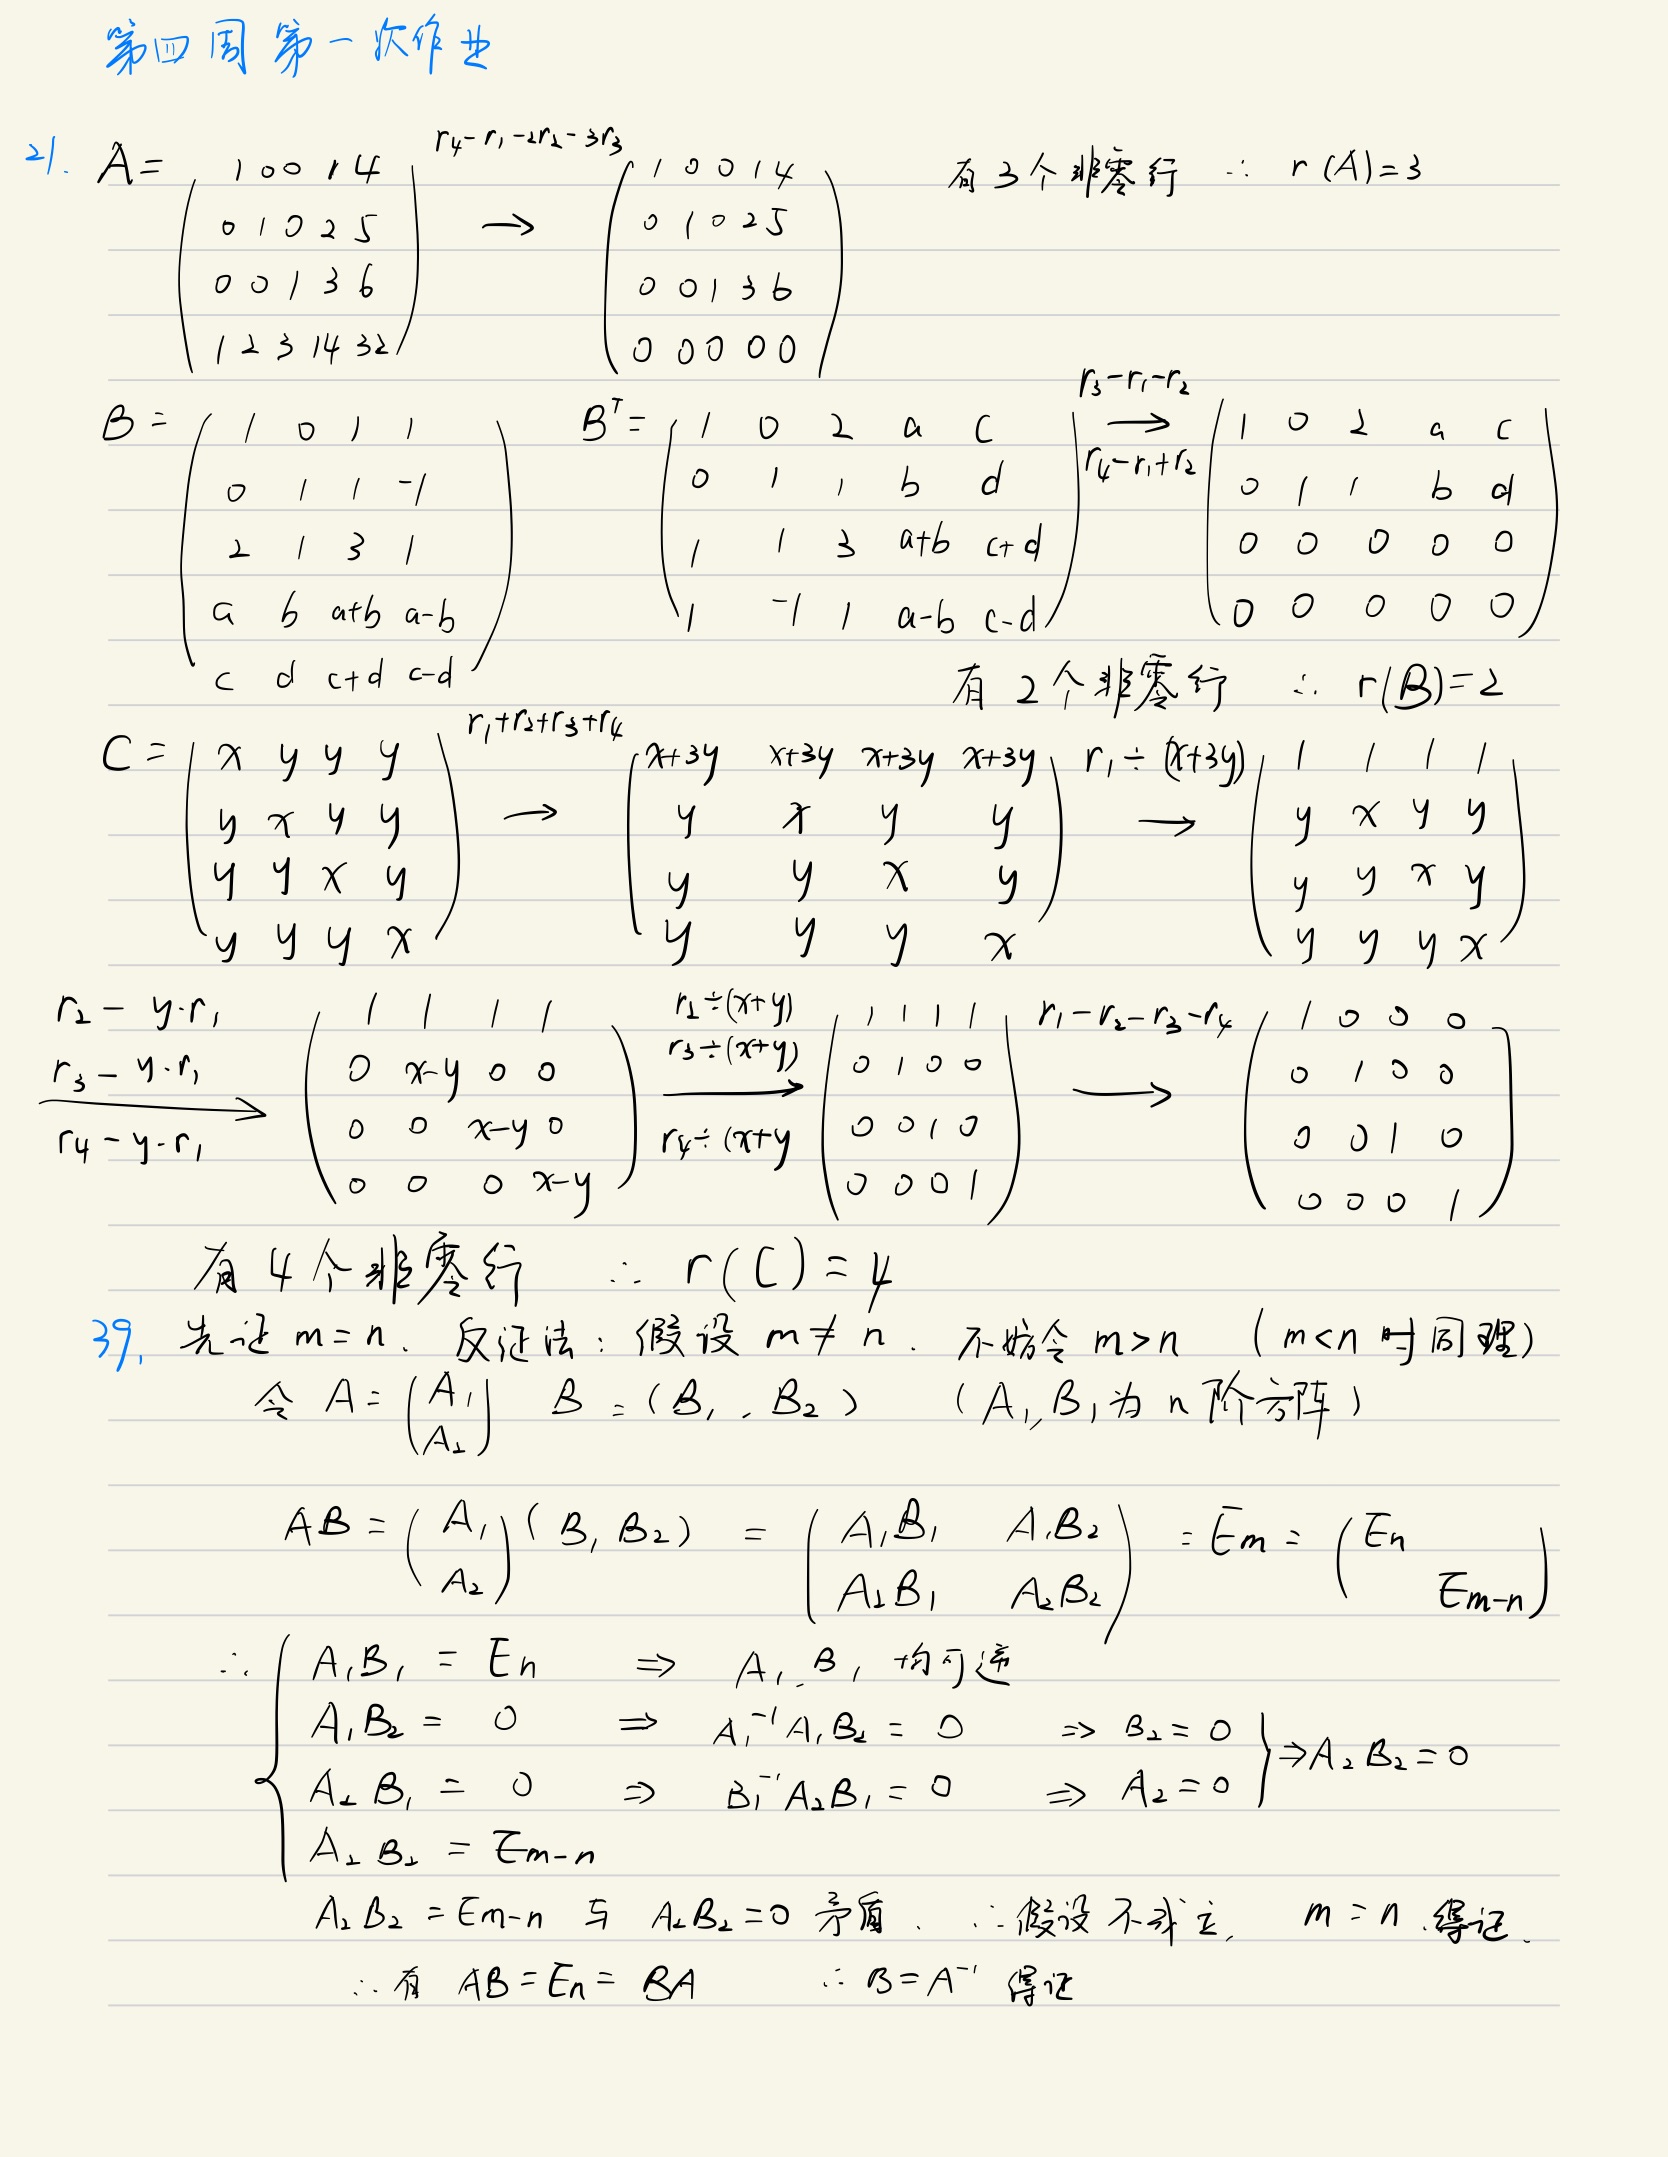 第四周第一次作业
21. A = ( 1 0 0 1 4 ; 0 1 0 2 5 ; 0 0 1 3 6 ; 1 2 3 14 32 ) r₄-r₁-2r₂-3r₃ → ( 1 0 0 1 4 ; 0 1 0 2 5 ; 0 0 1 3 6 ; 0 0 0 0 0 ) 有3个非零行 ∴ r(A)=3
B = ( 1 0 1 1 ; 0 1 1 -1 ; 2 1 3 1 ; a b a+b a-b ; c d c+d c-d ) Bᵀ = ( 1 0 2 a c ; 0 1 1 b d ; 1 1 3 a+b c+d ; 1 -1 1 a-b c-d ) r₃-r₁-r₂ → r₄-r₁+r₂ ( 1 0 2 a c ; 0 1 1 b d ; 0 0 0 0 0 ; 0 0 0 0 0 )
有2个非零行 ∴ r(B)=2
C = ( x y y y ; y x y y ; y y x y ; y y y x ) r₁+r₂+r₃+r₄ → ( x+3y x+3y x+3y x+3y ; y x y y ; y y x y ; y y y x ) r₁÷(x+3y) → ( 1 1 1 1 ; y x y y ; y y x y ; y y y x )
r₂-y·r₁ r₃-y·r₁ → r₄-y·r₁ ( 1 1 1 1 ; 0 x-y 0 0 ; 0 0 x-y 0 ; 0 0 0 x-y ) r₂÷(x+y) r₃÷(x+y) → r₄÷(x+y ( 1 1 1 1 ; 0 1 0 0 ; 0 0 1 0 ; 0 0 0 1 ) r₁-r₂-r₃-r₄ → ( 1 0 0 0 ; 0 1 0 0 ; 0 0 1 0 ; 0 0 0 1 )
有4个非零行 ∴ r(C)=4
39. 先证 m=n. 反证法: 假设 m≠n. 不妨令 m>n (m<n 时同理)
令 A = ( A₁ ; A₂ ) B = (B₁, B₂) (A₁,B₁为 n 阶方阵)
AB = ( A₁ ; A₂ ) (B₁ B₂) = ( A₁B₁ A₁B₂ ; A₂B₁ A₂B₂ ) = Em = ( En ; Em-n )
∴ { A₁B₁ = En ⇒ A₁, B₁ 均可逆
A₁B₂ = 0 ⇒ A₁⁻¹A₁B₂ = 0 ⇒ B₂ = 0
A₂B₁ = 0 ⇒ B₁⁻¹A₂B₁ = 0 ⇒ A₂ = 0 } ⇒ A₂B₂ = 0
A₂B₂ = Em-n
A₂B₂ = Em-n 与 A₂B₂=0 矛盾. ∴假设不成立, m=n 得证.
∴有 AB=En=BA ∴ B=A⁻¹ 得证